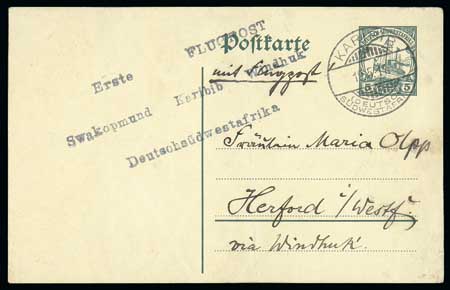 FLUGPOST
Erste
Swakopmund Karibib Windhuk
Deutschsüdwestafrika
Postkarte
mit Flugpost
KARIBIB
(DEUTSCH
SÜDWESTAFRIKA
5
Fräulein Maria Olpp
Herford i/Westf.
via Windhuk.